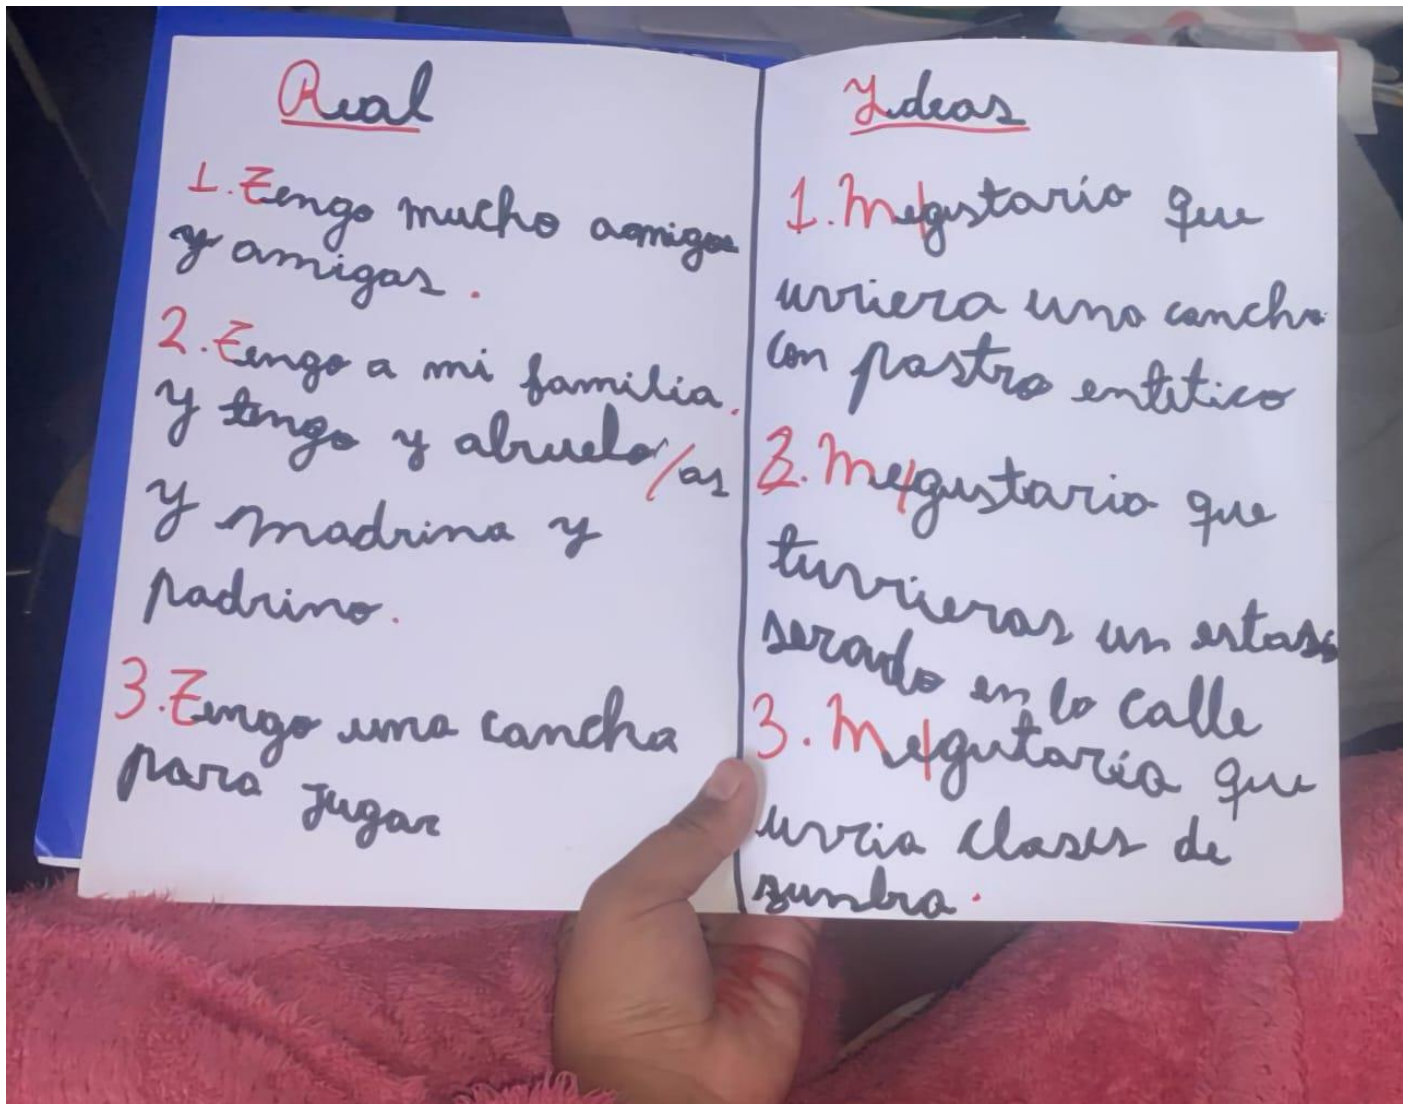 Real
1. Tengo mucho aomigos
y amigas.
2. Tengo a mi familia.
y tengo y abruelo/as
y madrina y
padrino.
3. Tengo una cancha
para jugar
Ideas
1. Me|gustaría que
uvriera una cancha
con pastro entitico
2. Me|gustaria que
tuvrieras un estas
serado en la calle
3. Me|gutaría que
uvria clases de
zumbra.